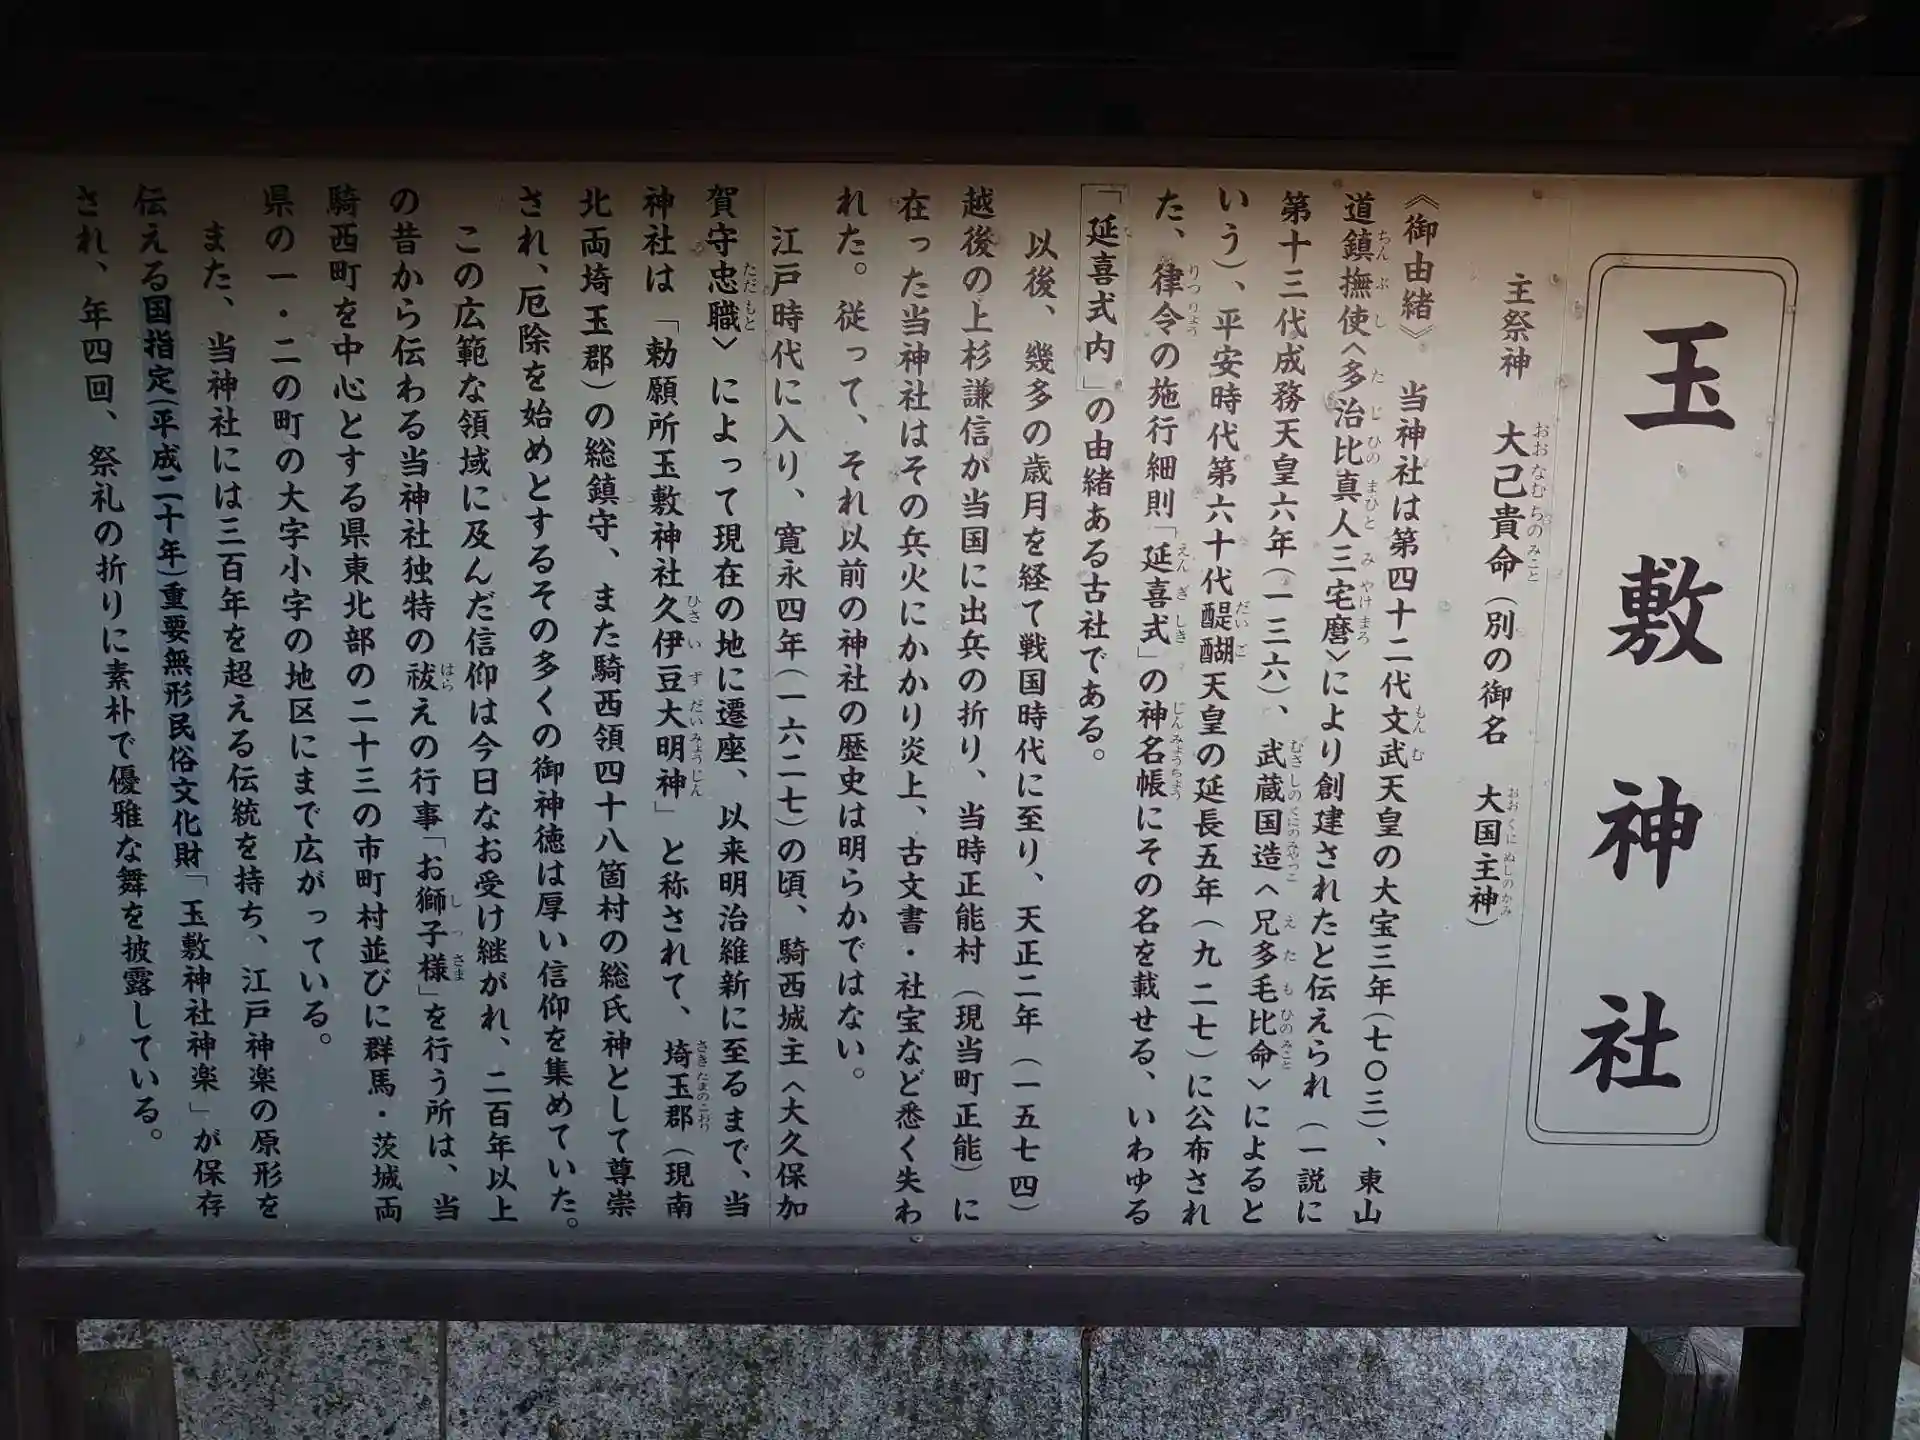 玉敷神社
主祭神　大己貴命（別の御名　大国主神）
《御由緒》　当神社は第四十二代文武天皇の大宝三年（七〇三）、東山
道鎮撫使〈多治比真人三宅麿〉により創建されたと伝えられ（一説に
第十三代成務天皇六年（一三六）、武蔵国造〈兄多毛比命〉によると
いう）、平安時代第六十代醍醐天皇の延長五年（九二七）に公布され
た、律令の施行細則「延喜式」の神名帳にその名を載せる、いわゆる
「延喜式内」の由緒ある古社である。
以後、幾多の歳月を経て戦国時代に至り、天正二年（一五七四）
越後の上杉謙信が当国に出兵の折り、当時正能村（現当町正能）に
在った当神社はその兵火にかかり炎上、古文書・社宝など悉く失わ
れた。従って、それ以前の神社の歴史は明らかではない。
江戸時代に入り、寛永四年（一六二七）の頃、騎西城主〈大久保加
賀守忠職〉によって現在の地に遷座、以来明治維新に至るまで、当
神社は「勅願所玉敷神社久伊豆大明神」と称されて、埼玉郡（現南
北両埼玉郡）の総鎮守、また騎西領四十八箇村の総氏神として尊崇
され、厄除を始めとするその多くの御神徳は厚い信仰を集めていた。
この広範な領域に及んだ信仰は今日なお受け継がれ、二百年以上
の昔から伝わる当神社独特の祓えの行事「お獅子様」を行う所は、当
騎西町を中心とする県東北部の二十三の市町村並びに群馬・茨城両
県の一・二の町の大字小字の地区にまで広がっている。
また、当神社には三百年を超える伝統を持ち、江戸神楽の原形を
伝える国指定（平成二十年）重要無形民俗文化財「玉敷神社神楽」が保存
され、年四回、祭礼の折りに素朴で優雅な舞を披露している。